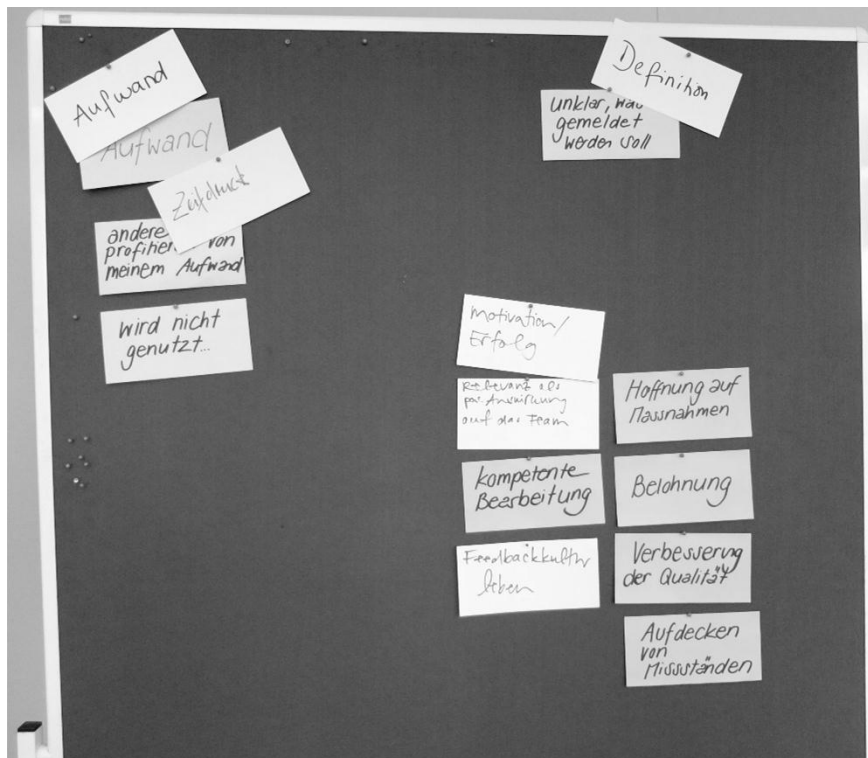 Aufwand
Aufwand
Zeitdruck
andere
profitieren von
meinem Aufwand
wird nicht
genutzt...
Definition
unklar, was
gemeldet
werden soll
Motivation/
Erfolg
Relevant als
pos. Auswirkung
auf das Team
kompetente
Bearbeitung
Feedbackkultur
leben
Hoffnung auf
Massnahmen
Belohnung
Verbesserung
der Qualität
Aufdecken
von
Missständen